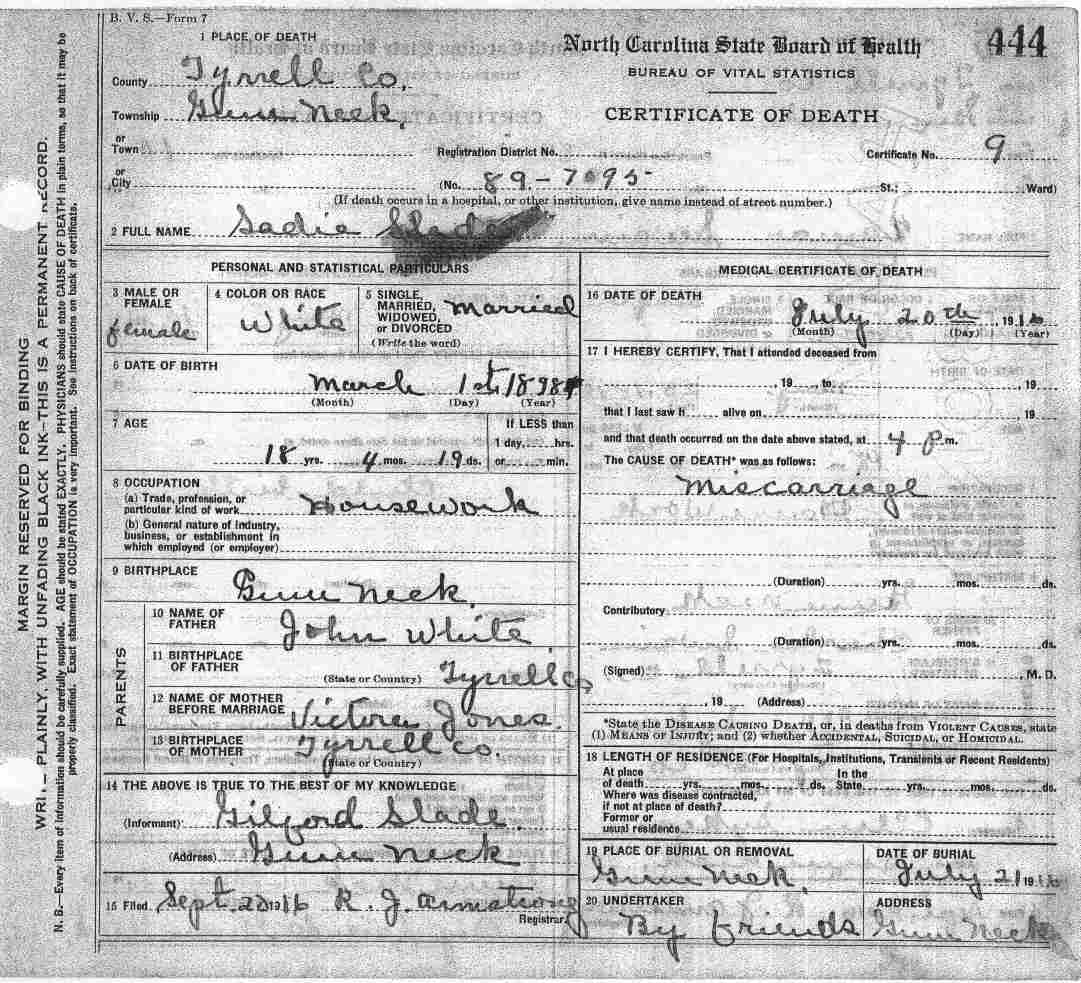 B. V. S.—Form 7
1 PLACE OF DEATH
County Tyrrell Co,
Township Gum Neck,
or
Town
or
City
North Carolina State Board of Health 444
BUREAU OF VITAL STATISTICS
CERTIFICATE OF DEATH
Registration District No. Certificate No. 9
(No. 89-7095 St.; Ward)
(If death occurs in a hospital, or other institution, give name instead of street number.)
2 FULL NAME Sadie Slade
PERSONAL AND STATISTICAL PARTICULARS
3 MALE OR FEMALE female
4 COLOR OR RACE White
5 SINGLE, MARRIED, WIDOWED, or DIVORCED Married
(Write the word)
6 DATE OF BIRTH
March 1st 1898
(Month) (Day) (Year)
7 AGE
18 yrs. 4 mos. 19 ds.
If LESS than
1 day, hrs.
or min.
8 OCCUPATION
(a) Trade, profession, or
particular kind of work Housework
(b) General nature of industry,
business, or establishment in
which employed (or employer)
9 BIRTHPLACE
Gum Neck,
PARENTS
10 NAME OF FATHER John White
11 BIRTHPLACE OF FATHER
(State or Country) Tyrrell Co
12 NAME OF MOTHER BEFORE MARRIAGE Victora Jones.
13 BIRTHPLACE OF MOTHER Tyrrell Co.
(State or Country)
14 THE ABOVE IS TRUE TO THE BEST OF MY KNOWLEDGE
(Informant) Gilford Slade.
(Address) Gum Neck
15 Filed Sept. 20 1916 R. J. Armstrong
Registrar.
MEDICAL CERTIFICATE OF DEATH
16 DATE OF DEATH
July 20th, 1916
(Month) (Day) (Year)
17 I HEREBY CERTIFY, That I attended deceased from
, 19 , to , 19
that I last saw h alive on 19
and that death occurred on the date above stated, at 4 P m.
The CAUSE OF DEATH* was as follows:
Miscarriage
(Duration) yrs. mos. ds.
Contributory
(Duration) yrs. mos. ds.
(Signed) , M. D.
, 19 (Address)
*State the DISEASE CAUSING DEATH, or, in deaths from VIOLENT CAUSES, state
(1) MEANS OF INJURY; and (2) whether ACCIDENTAL, SUICIDAL, OR HOMICIDAL.
18 LENGTH OF RESIDENCE (For Hospitals, Institutions, Transients or Recent Residents)
At place In the
of death yrs. mos. ds. State yrs. mos. ds.
Where was disease contracted,
if not at place of death?
Former or
usual residence
19 PLACE OF BURIAL OR REMOVAL
Gum Neck,
DATE OF BURIAL
July 21 1916
20 UNDERTAKER
By friends
ADDRESS
Gum Neck
MARGIN RESERVED FOR BINDING
PLAINLY, WITH UNFADING BLACK INK—THIS IS A PERMANENT RECORD.
N. B.—Every item of information should be carefully supplied. AGE should be stated EXACTLY. PHYSICIANS should state CAUSE OF DEATH in plain terms, so that it may be
properly classified. Exact statement of OCCUPATION is very important. See instructions on back of certificate.